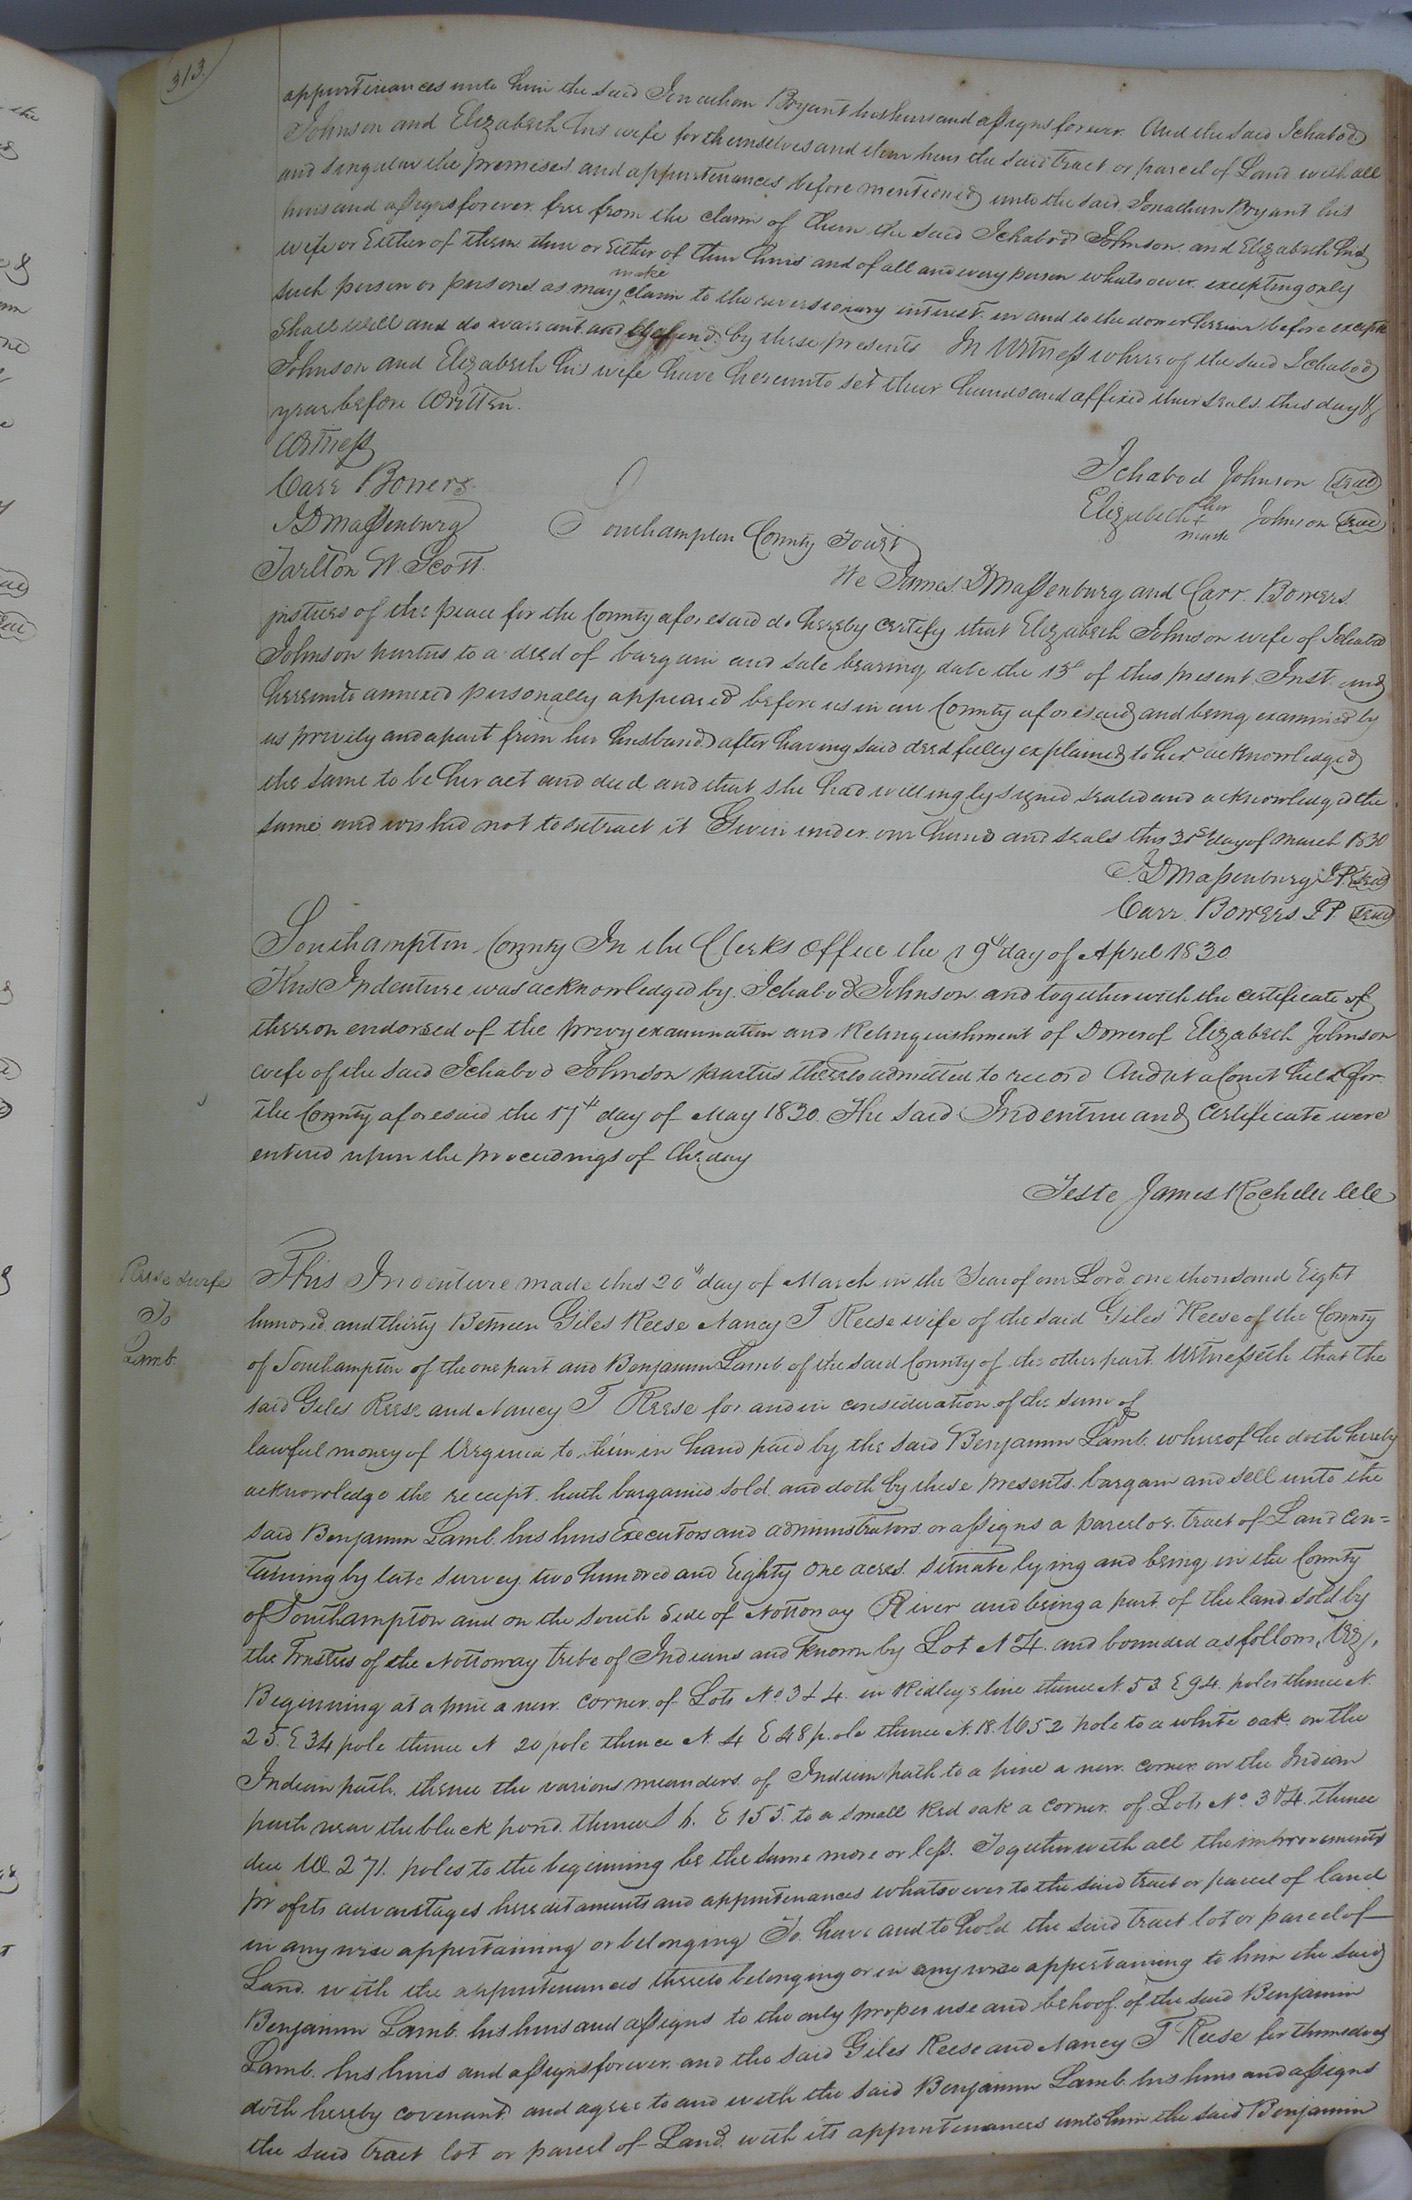 313.
appurtenances unto him the said Jonathan Bryant his heirs and assigns forever. And the said Ichabod
Johnson and Elizabeth his wife for themselves and their heirs the said tract or parcel of Land with all
and singular the premises and appurtenances before mentioned unto the said Jonathan Bryant his
heirs and assigns forever free from the claim of them the said Ichabod Johnson and Elizabeth his
wife or Either of them their or Either of their heirs and of all and every person whatsoever excepting only
such person or persons as may make claim to the reversionary interest in and to the dower herein before except
shall will and do warrant and defend by these presents In Witness whereof the said Ichabod
Johnson and Elizabeth his wife have hereunto set their hands and affixed their seals this day &
year before Written.
Witness
Carr Bowers
J D Massenburg
Tarlton W. Scott
Ichabod Johnson seal
Elizabeth her + mark Johnson seal
Southampton County Court
We James D Massenburg and Carr Bowers
justices of the peace for the County aforesaid do hereby certify that Elizabeth Johnson wife of Ichabod
Johnson parties to a deed of bargain and sale bearing date the 13th of this present Inst. and
hereunto annexed personally appeared before us in our County aforesaid and being examined by
us privily and apart from her husband after having said deed fully explained to her acknowledged
the same to be her act and deed and that she had willingly signed sealed and acknowledged the
same and wished not to retract it Given under our hands and seals this 31st day of March 1830
J. D Massenburg J.P. seal
Carr Bowers J P seal
Southampton County In the Clerks office the 19th day of April 1830
This Indenture was acknowledged by Ichabod Johnson and together with the certificate of
thereon endorsed of the privy examination and Relinquishment of Dower of Elizabeth Johnson
wife of the said Ichabod Johnson parties thereto admitted to record And at a Court held for
the County aforesaid the 17th day of May 1830. The said Indenture and Certificate were
entered upon the proceedings of the day
Teste James Rochelle CSC
Reese & wife
To
Lamb
This Indenture made this 20th day of March in the Year of our Lord one thousand Eight
hundred and thirty Between Giles Reese Nancy T Reese wife of the said Giles Reese of the County
of Southampton of the one part and Benjamin Lamb of the said County of the other part Witnesseth that the
said Giles Reese and Nancy T Reese for and in consideration of the sum of
lawful money of Virginia to him in hand paid by the said Benjamin Lamb whereof he doth hereby
acknowledge the receipt hath bargained sold and doth by these presents bargain and sell unto the
said Benjamin Lamb his heirs Executors and administrators or assigns a parcel or tract of Land con=
taining by late survey two hundred and Eighty one acres situate lying and being in the County
of Southampton and on the South side of Nottoway River and being a part of the land sold by
the Trustees of the Nottoway tribe of Indians and known by Lot N 4. and bounded as follows, Viz,
Beginning at a pine a new corner of Lots No 3 & 4 in Ridleys line thence N. 53. E 94. poles thence N.
25. E 34 pole thence N 20 pole thence N. 4 E 48 pole thence N. 18. W 52 pole to a white oak on the
Indian path, thence the various meanders of Indian path to a pine a new corner on the Indian
path near the black pond thence S E 155. to a small Red oak a corner of Lots No. 3 & 4. thence
due W. 271. poles to the beginning be the same more or less. Together with all the improvements
profits advantages hereditaments and appurtenances whatsoever to the said tract or parcel of land
in any wise appertaining or belonging To have and to hold the said tract lot or parcel of
Land with the appurtenances thereto belonging or in any wise appertaining to him the said
Benjamin Lamb his heirs and assigns to the only proper use and behoof of the said Benjamin
Lamb his heirs and assigns forever and the said Giles Reese and Nancy T Reese for themselves
doth hereby covenant and agree to and with the said Benjamin Lamb his heirs and assigns
the said tract lot or parcel of Land with its appurtenances unto him the said Benjamin